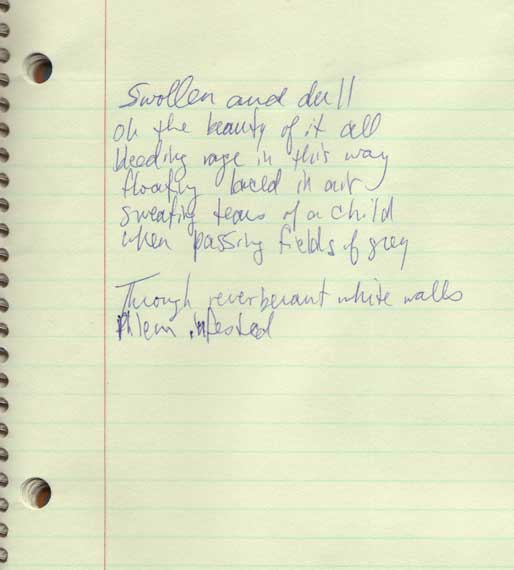 Swollen and dull
oh the beauty of it all
bleeding rage in this way
floating laced in air
sweating tears of a child
when passing fields of grey
Through reverberant white walls
Phlem infested